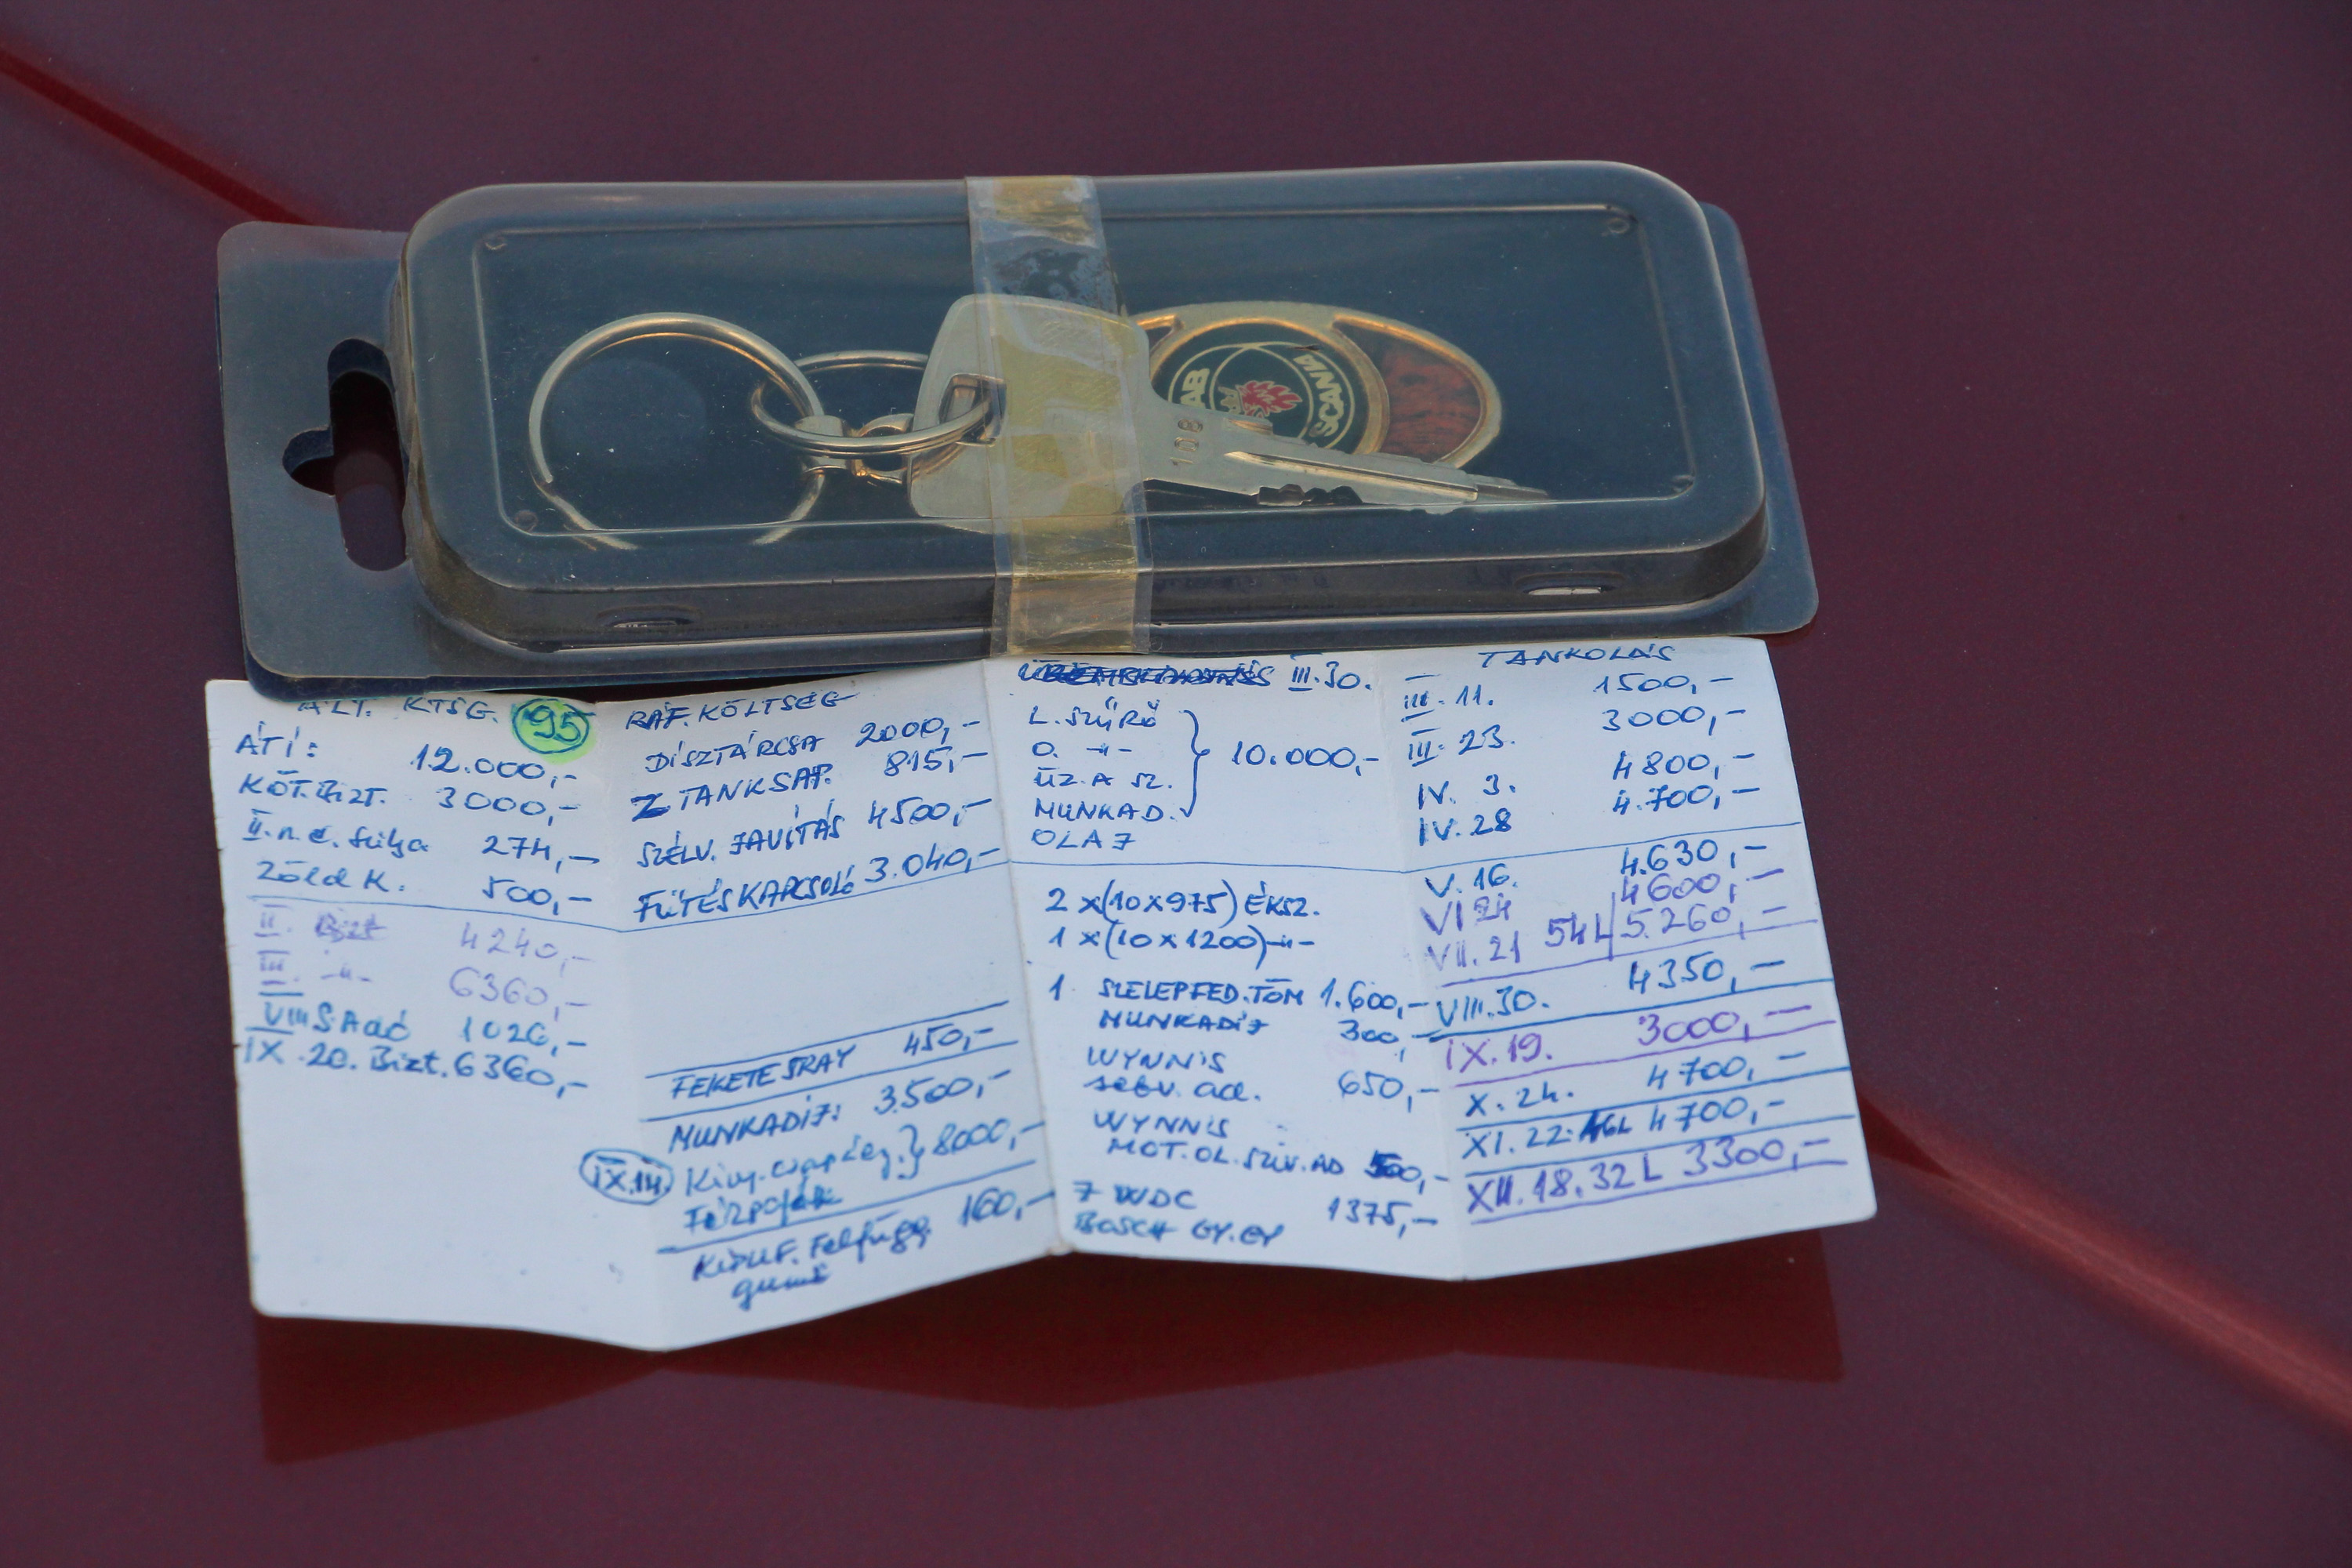 SCANIA
108
ÁLT. KTSG. 95
ÁTÍ: 12.000,-
KÖT. BIZT. 3000,-
II. n. é. súlya 274,-
Zöld K. 500,-
II. Bizt 4240,-
III. -"- 6360,-
VIII S Adó 1026,-
IX. 20. Bizt. 6360,-
RÁF. KÖLTSÉG
DÍSZTÁRCSA 2000,-
TANKSAP. 815,-
SZÉLV. JAVÍTÁS 4500,-
FŰTÉSKAPCSOLÓ 3.040,-
FEKETE SRAY 450,-
MUNKADÍJ: 3.500,-
IX.14. 8000,-
KIPUF. Felfügg. 160,-
gumi
III.30.
L. SZŰRŐ
O. -"-
ÜZ. A SZ.
MUNKAD.
10.000,-
OLAJ
2 x(10x975) ÉKSZ.
1 x(10x1200)-"-
1 SZELEPFED. TÖM 1.600,-
MUNKADÍJ 300,-
WYNN'S
szelv. ad. 650,-
WYNN'S
MOT. OL. SZIV. AD 500,-
7 WDC 1375,-
BOSCH GY. GY
TANKOLÁS
III. 11. 1500,-
III. 23. 3000,-
IV. 3. 4800,-
IV. 28 4.700,-
V. 16. 4.630,-
VI 24 4600,-
VII. 21 54L 5.260,-
VIII. 30. 4350,-
IX. 19. 3000,-
X. 24. 4700,-
XI. 22. 46L 4700,-
XII. 18. 32L 3300,-